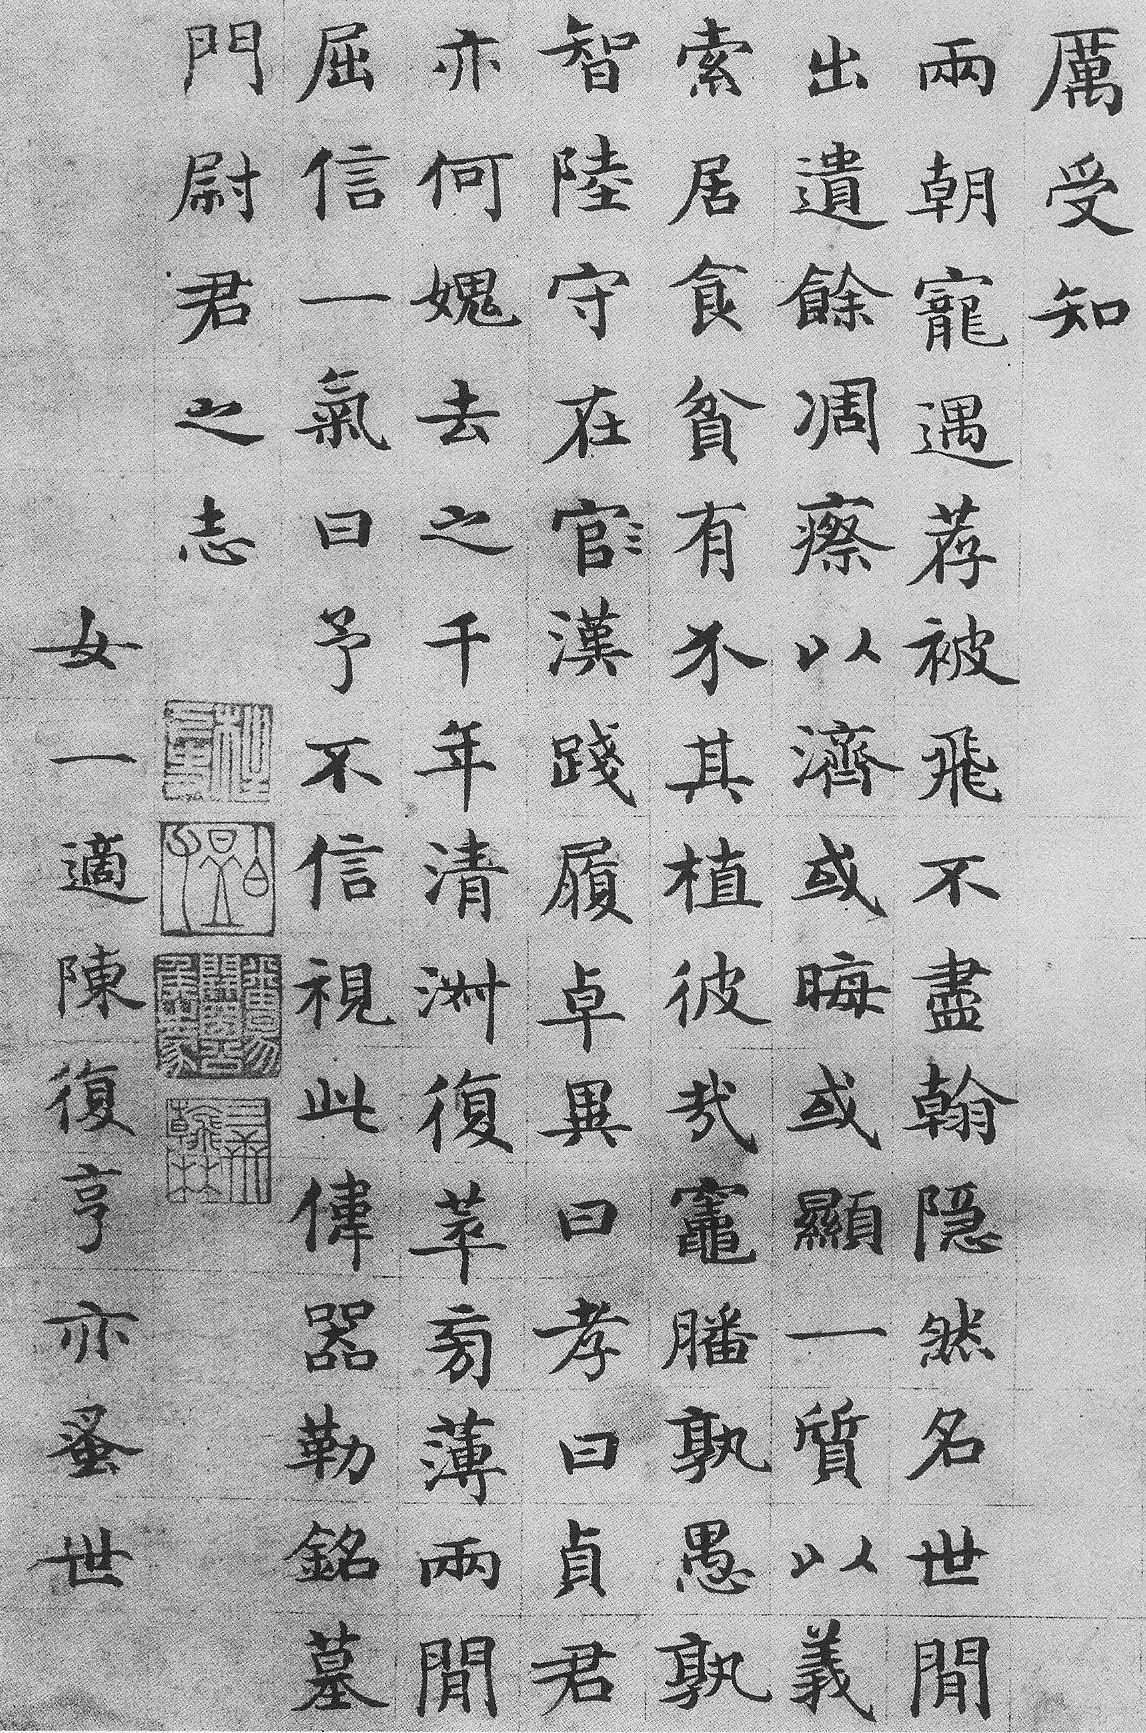 厲受知
兩朝寵遇荐被飛不盡翰隐然名世閒
出遺餘凋瘵以濟或晦或顯一質以義
索居食貧有不其植彼㢤竈膰孰愚孰
智陸守在官漢踐履卓異曰孝曰貞君
亦何媿去之千年清渊復萃旁薄兩閒
屈信一氣曰予不信視此偉器勒銘墓
門尉君之志
女一適陳復亨亦蚤世